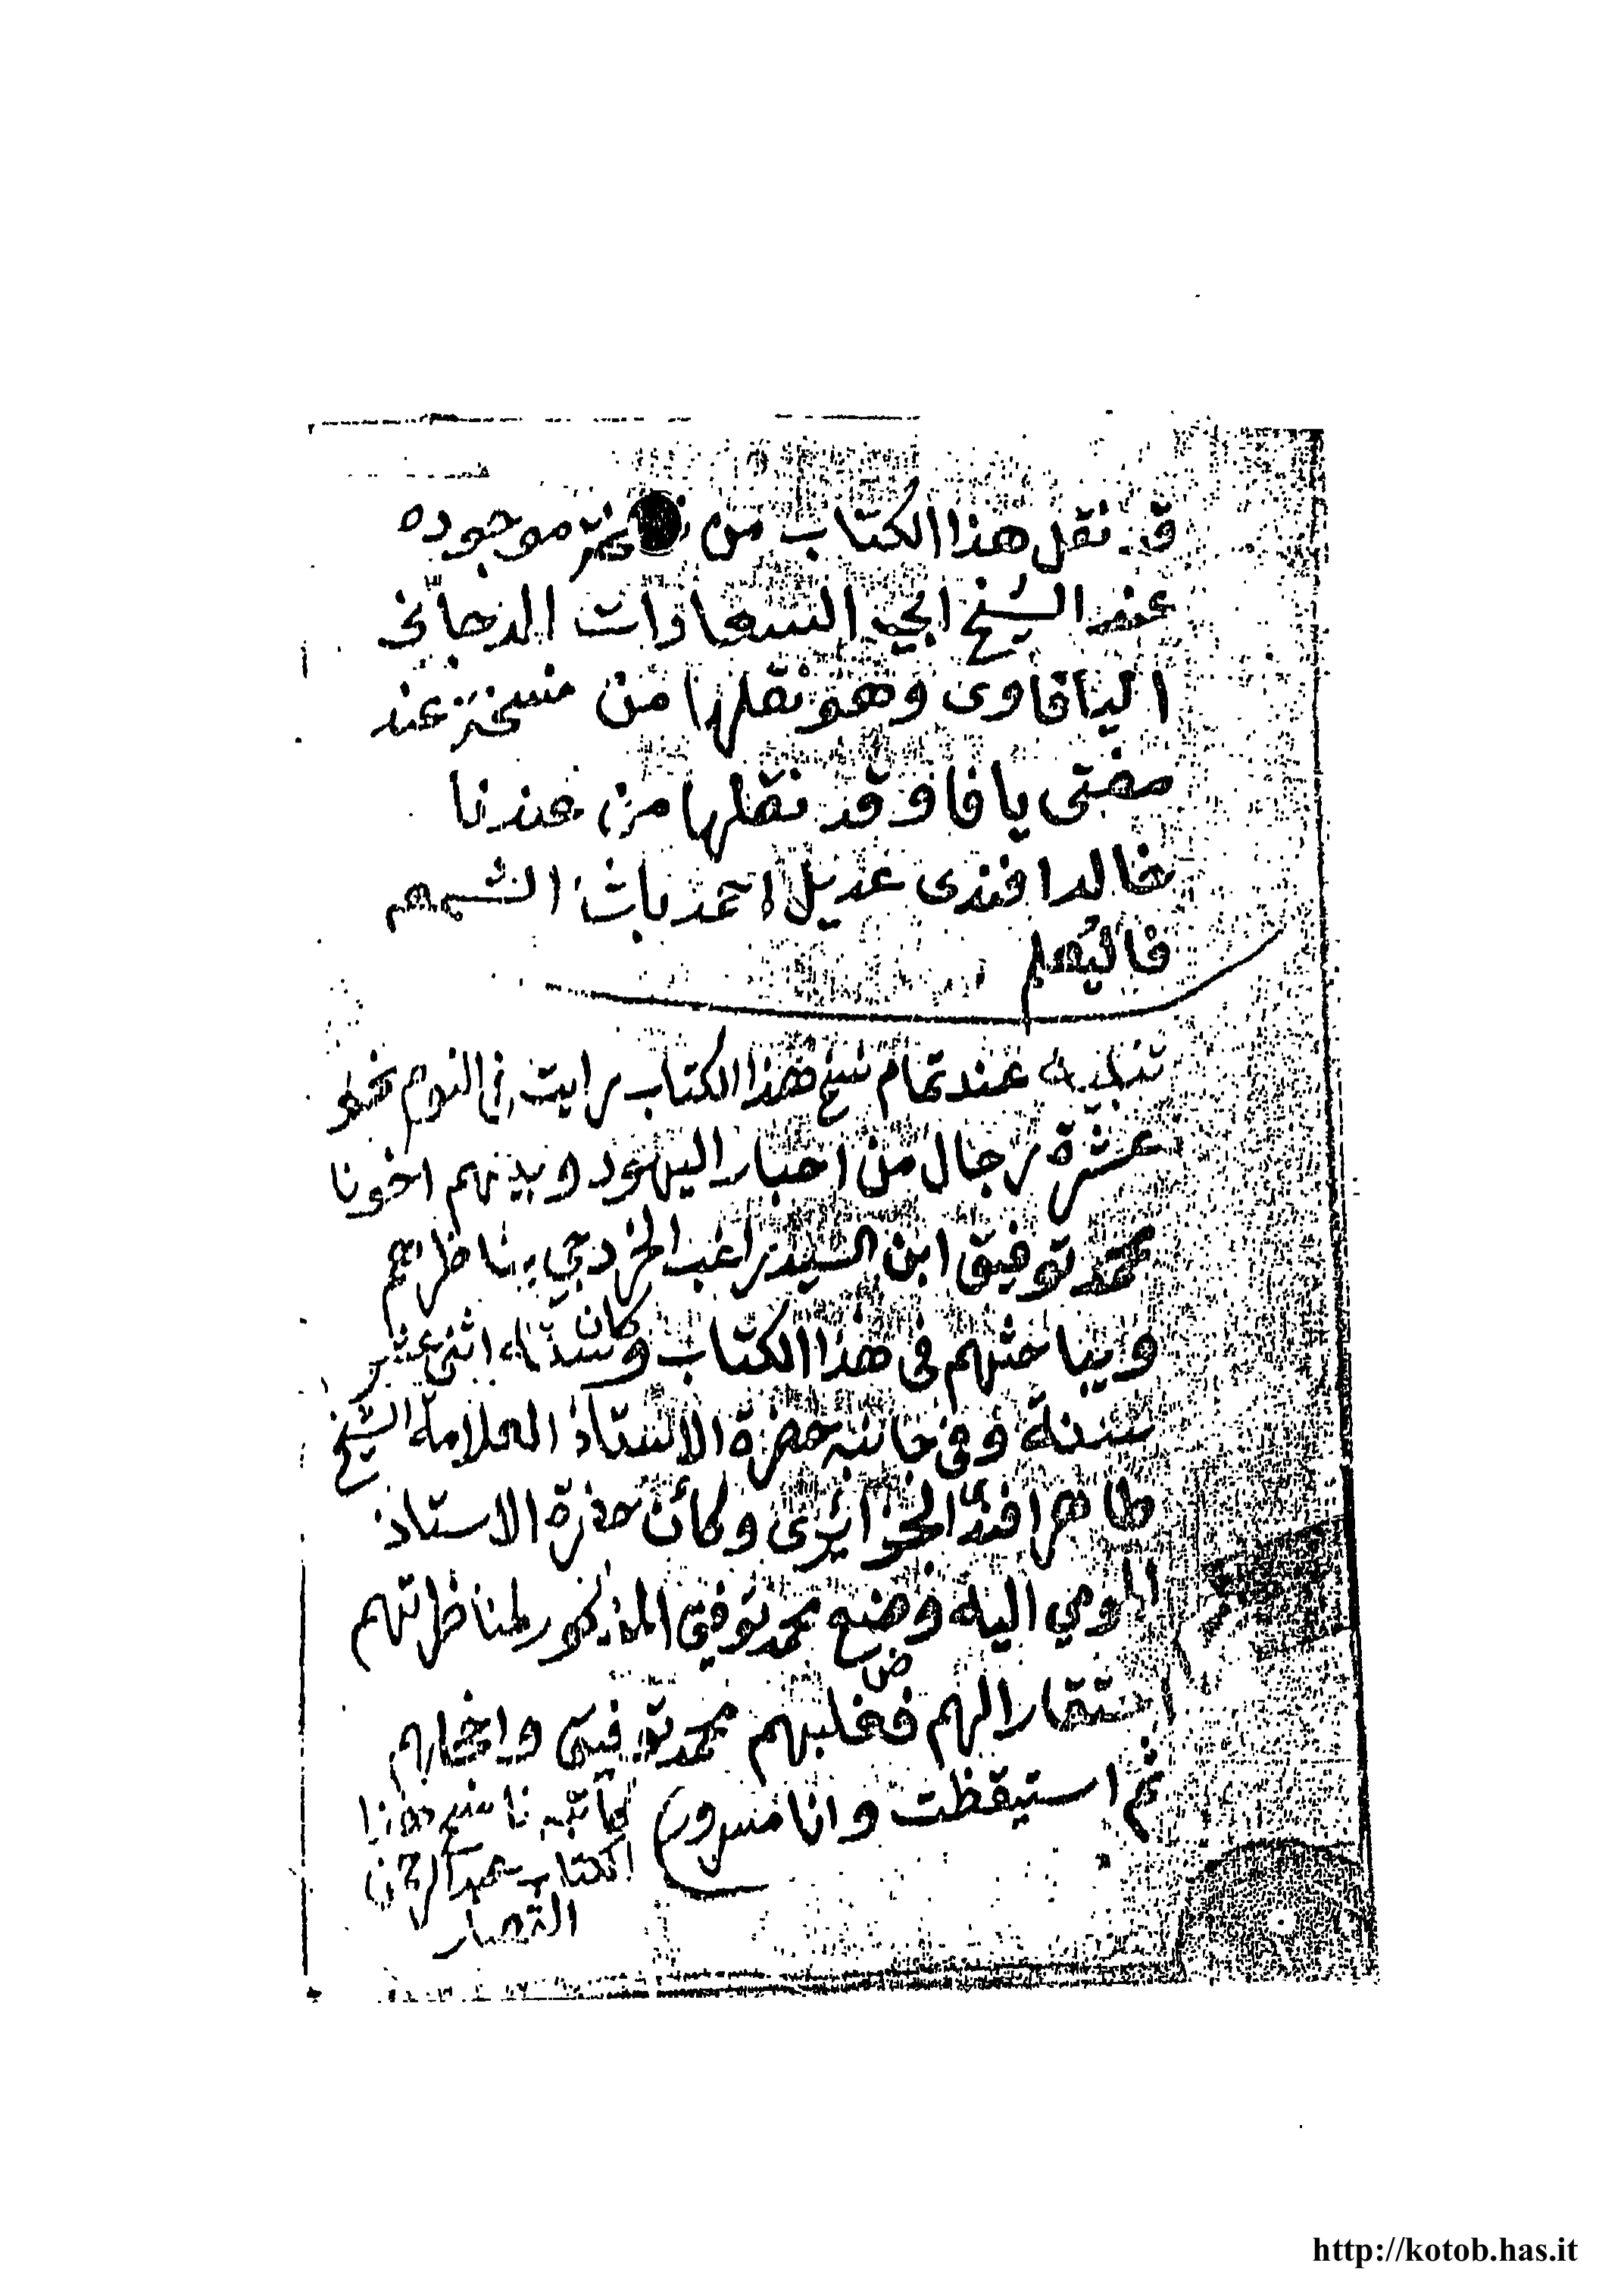 قد نقل هذا الكتاب من نسخة موجوده
عند الشيخ ابي السعادات الدجاني
اليافاوى وهو نقلها من نسخة عند
مفتى يافا وقد نقلها من عندنا
خالد افندى عديل احمد باشا الشمعه
فاليعلم
تنبيه عند تمام نسخ هذا الكتاب رايت في النوم نحو
عشرة رجال من احبار اليهود وبينهم اخونا
محمد توفيق ابن السيد راغب يناظرهم
ويباحثهم في هذا الكتاب وكان سنه اثنى عشر
سنة وفي جانبه حضرة الاستاذ العلامة الشيخ
طاهر افندى الجزائرى وكأن حضرة الاستاذ
المومي اليه وضع محمد توفيق المذكور لمناظرتهم
لهم فغلبهم محمد توفيق
ثم استيقظت وانا مسرور
كاتبه ناسخ هذا
الكتاب عبد الرحمن
القصار
http://kotob.has.it